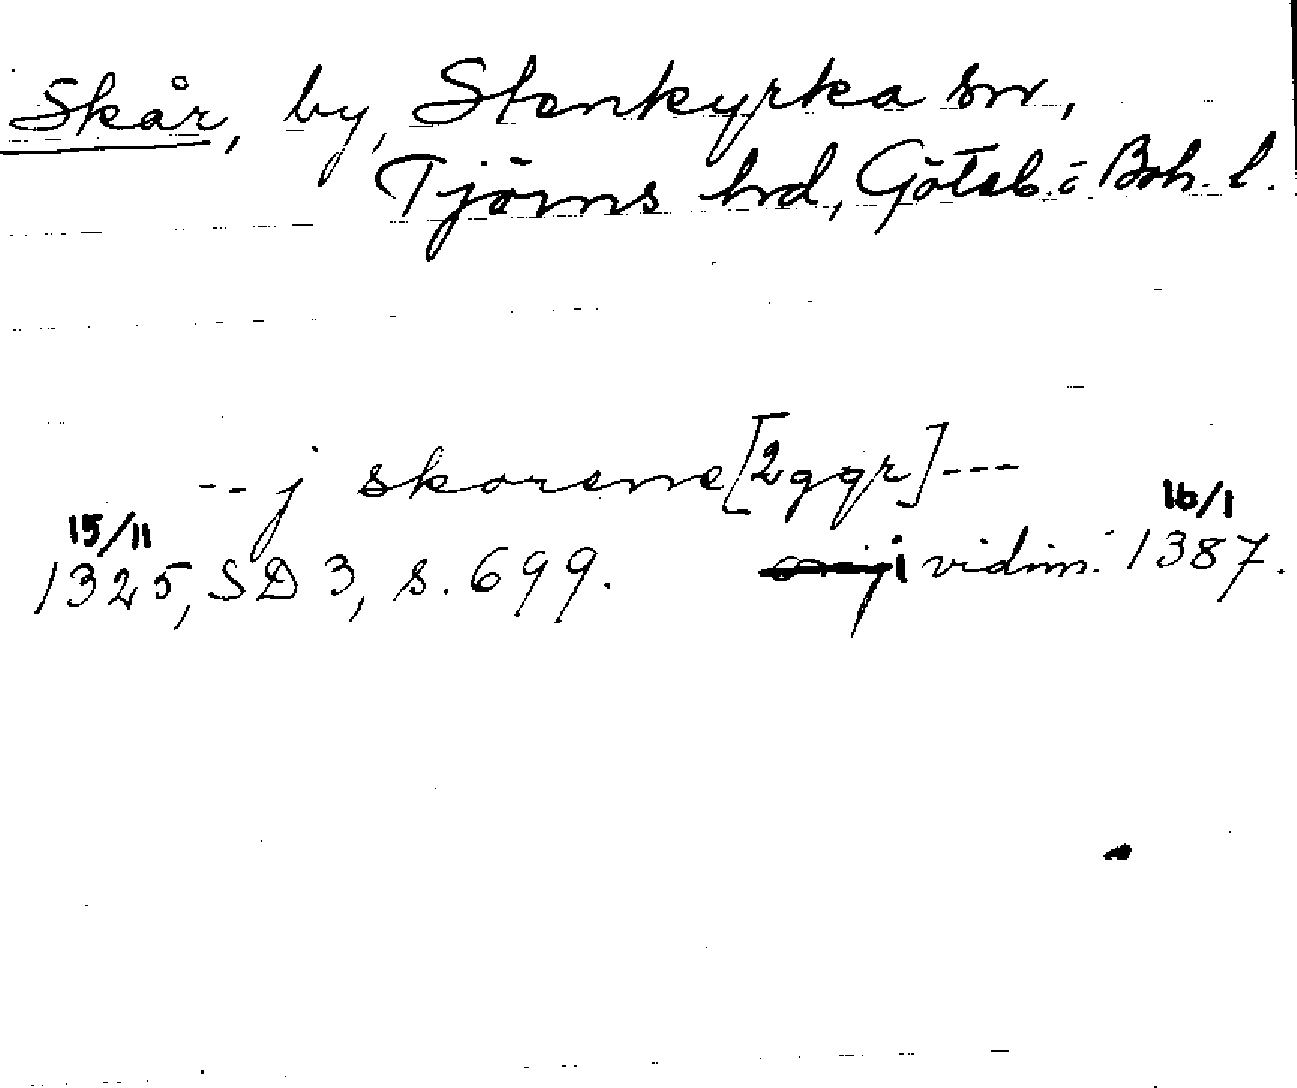 Skår, by, Stenkyrka sn,
Tjörns hd, Göteb. o Boh. l.
-- j skorene [2 ggr] ---
15/11 16/1
1325, SD 3, s. 699. i vidim. 1387.